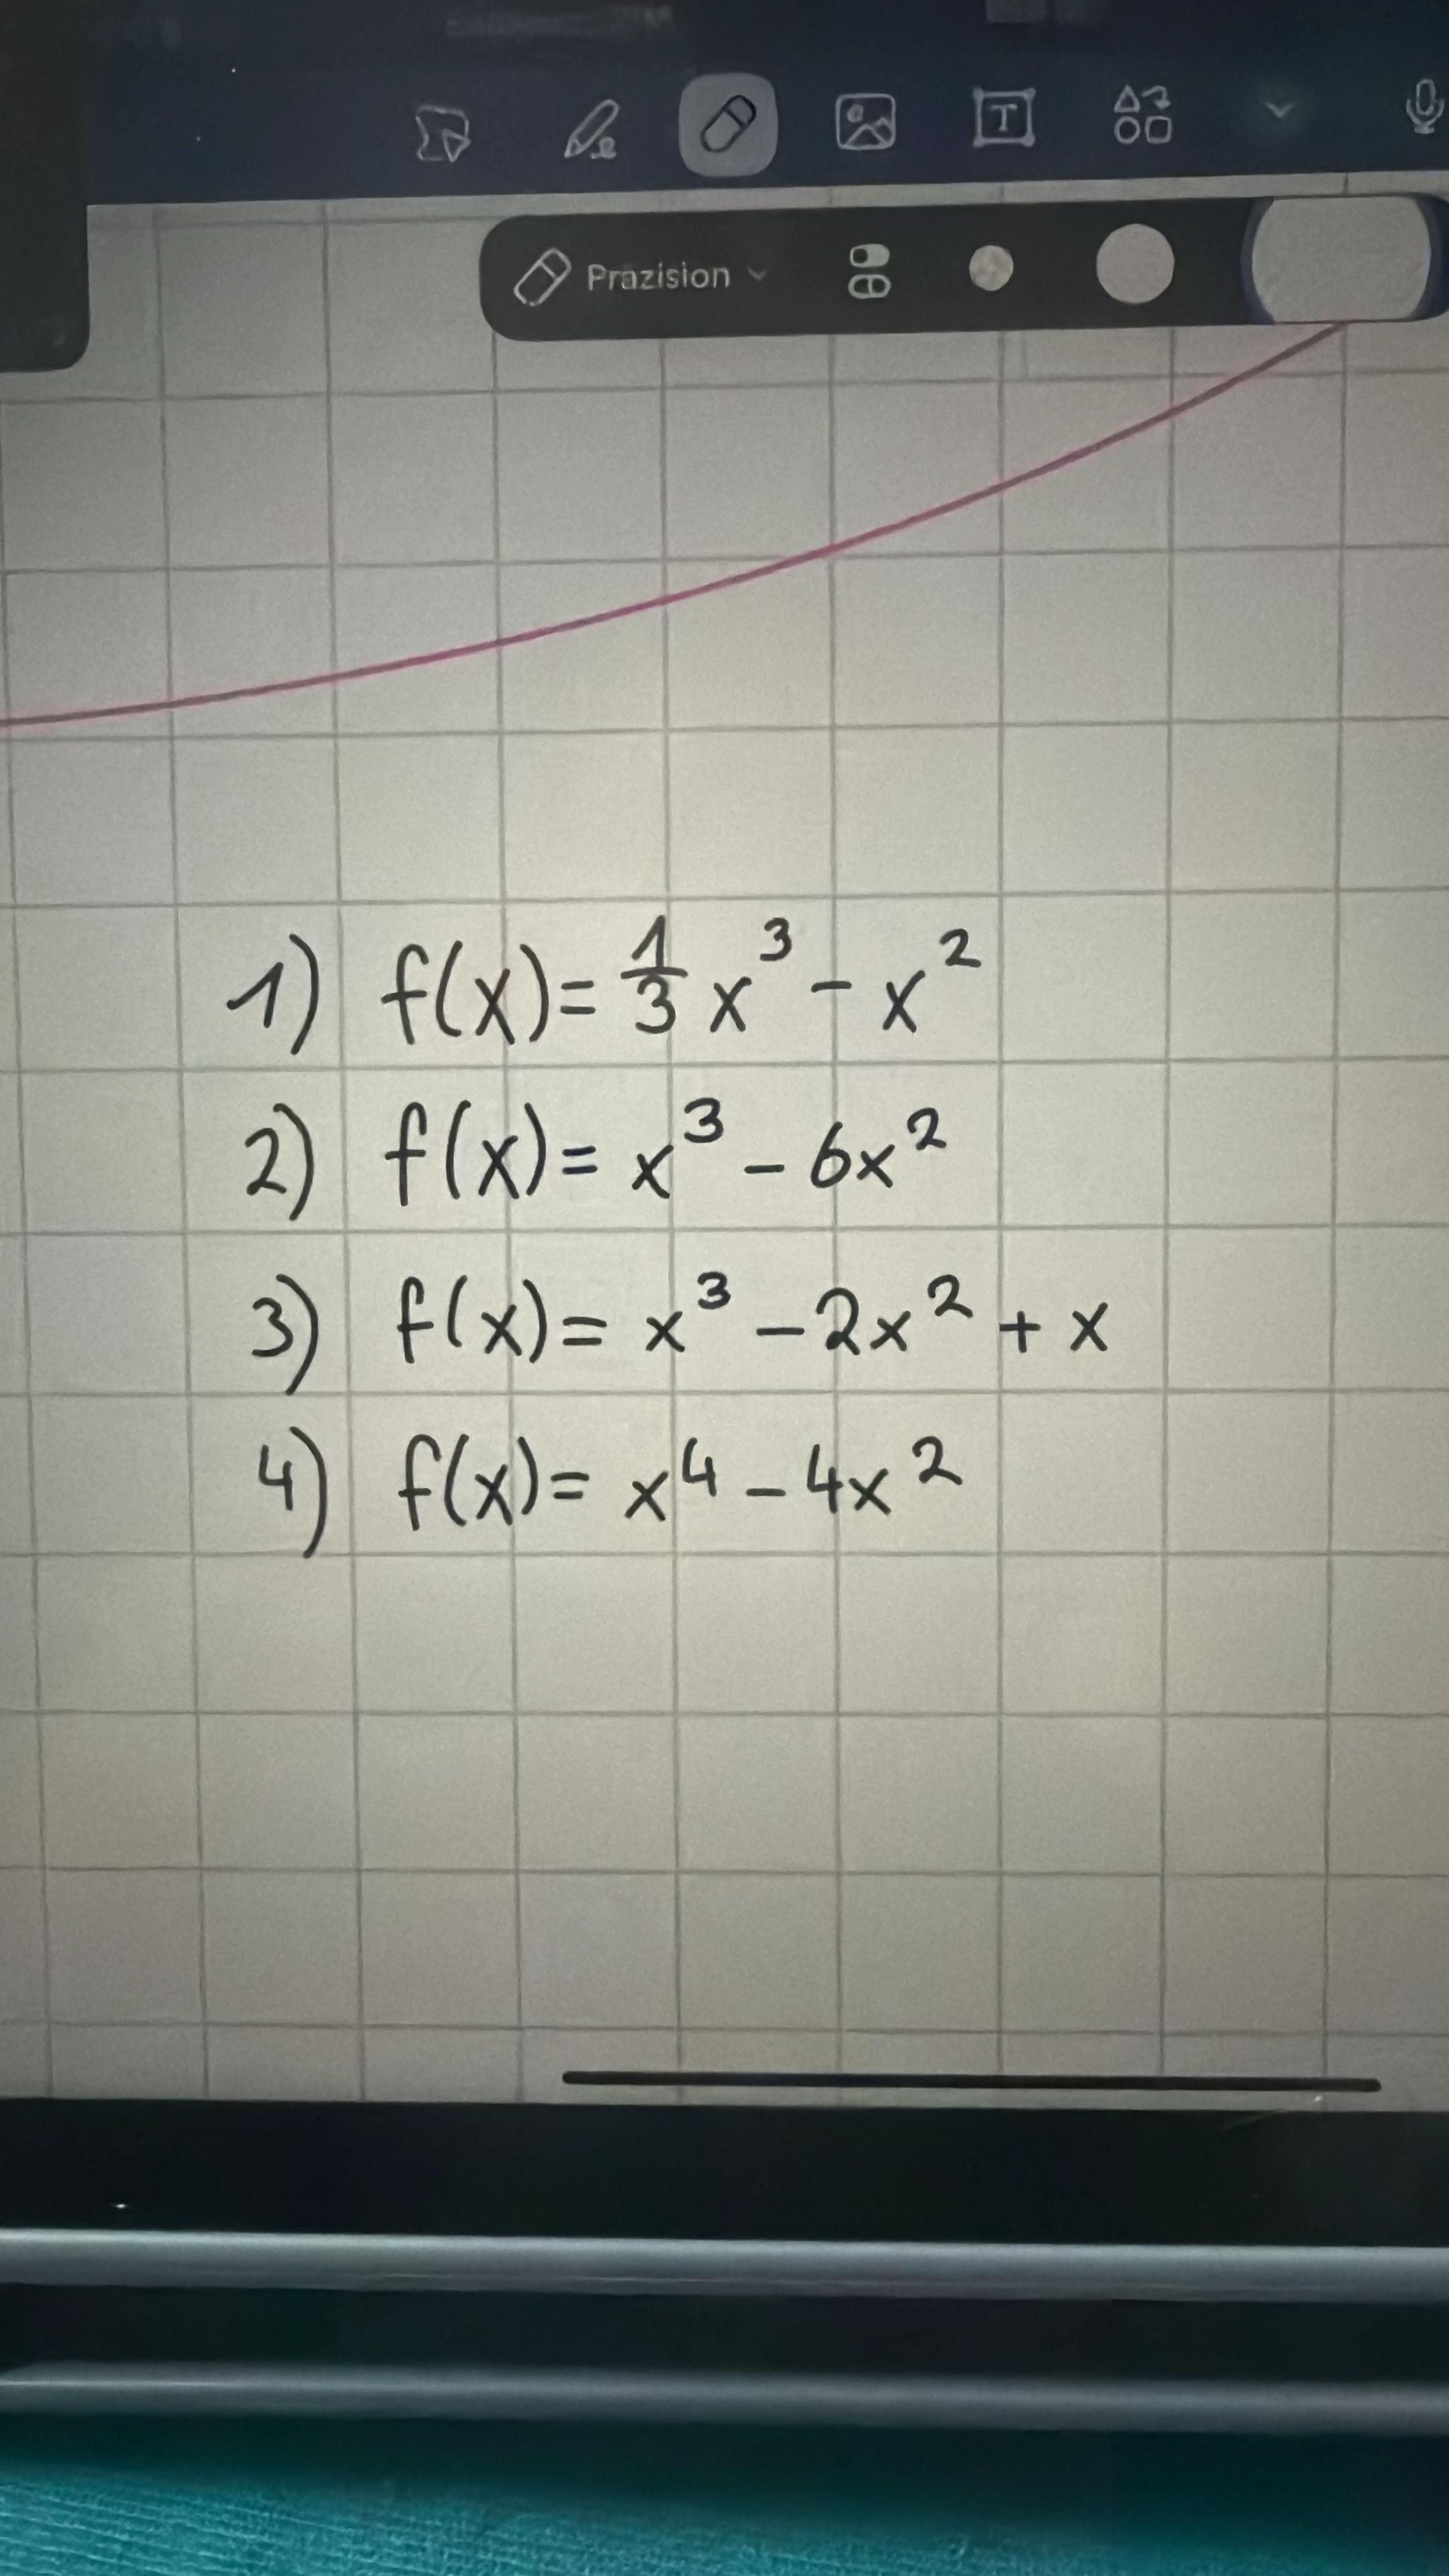 Präzision
1) f(x) = 1/3 x³ - x²
2) f(x) = x³ - 6x²
3) f(x) = x³ - 2x² + x
4) f(x) = x⁴ - 4x²